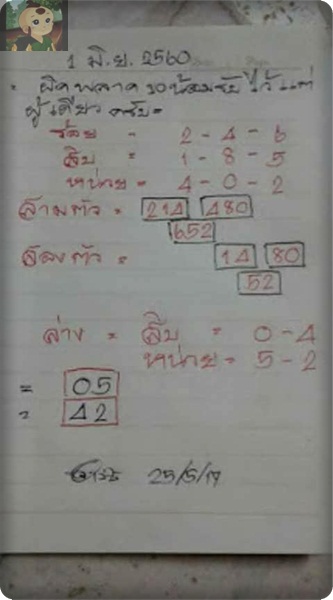 1 มิ.ย. 2560
ผิดพลาด ขอน้อมรับไว้แต่
ผู้เดียว ครับ =
ร้อย - 2 - 4 - 6
สิบ = 1 - 8 - 5
หน่วย = 4 - 0 - 2
สามตัว = 214 480
652
สองตัว = 14 80
52
ล่าง = สิบ = 0 - 4
หน่วย = 5 - 2
= 05
= 42
25/5/17